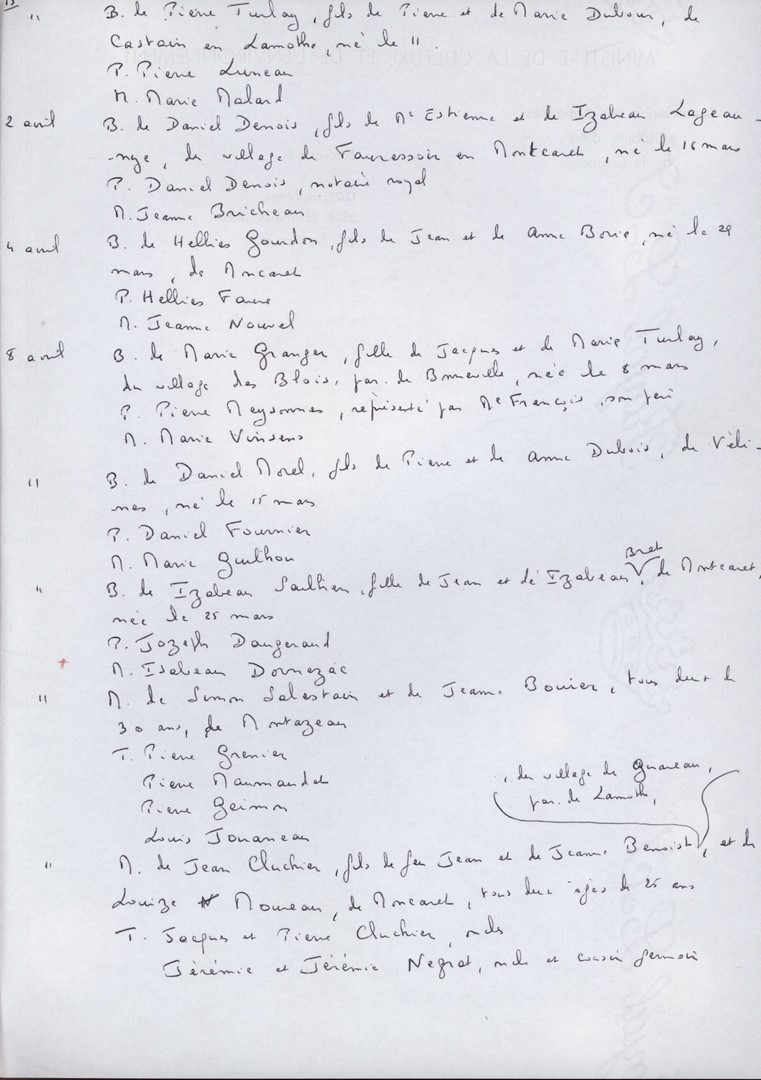 13
" B. de Pierre Turlay, fils de Pierre et de Marie Dubour, de
Castain en Lamothe, né le 11.
P. Pierre Luneau
M. Marie Malard
2 avril B. de Daniel Denois, fils de Me Estienne et de Izabeau Lageau-
-nye, du village de Fauressoir en Montcaret, né le 16 mars
P. Daniel Denois, notaire royal
M. Jeanne Bricheau
4 avril B. de Hellies Gourdon, fils de Jean et de Anne Borie, né le 29
mars, de Moncaret
P. Hellies Faure
M. Jeanne Nouvel
8 avril B. de Marie Granger, fille de Jacques et de Marie Turlay,
du village des Blois, par. de Bonneville, née le 8 mars
P. Pierre Meysonnes, représenté par Me François, son père
M. Marie Vinsens
" B. de Daniel Morel, fils de Pierre et de Anne Dubois, de Véli-
nes, né le 15 mars
P. Daniel Fournier
M. Marie Guilhou
Bret
" B. de Izabeau Saulhien, fille de Jean et de Izabeau, de Montcaret,
née le 25 mars
P. Jozeph Daugeraud
M. Isabeau Dornezac
" M. de Simon Salestain et de Jeanne Bourier, tous deux de
30 ans, de Montazeau
T. Pierre Grenier
Pierre Naumandet
Pierre Geimon
Louis Jouaneau
, du village de Guareau,
par. de Lamothe,
" M. de Jean Cluchier, fils de feu Jean et de Jeanne Benoist, et de
Louize Moureau, de Moncaret, tous deux agés de 25 ans
T. Jacques et Pierre Cluchier, oncles
Jérémie et Jérémie Negrat, oncle et cousin germain